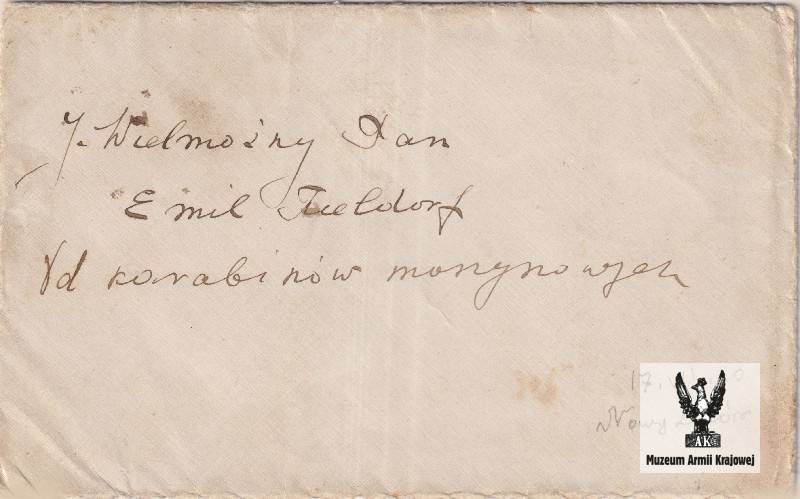 J. Wielmożny Pan
Emil Fieldorf
Od karabinów maszynowych
17.
Nowy
AK
Muzeum Armii Krajowej